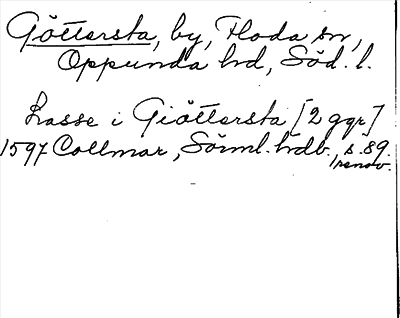 Göttersta, by, Floda sn,
Oppunda hd, Söd. l.
Lasse i Giöttersta [2 ggr]
1597 Collmar, Sörml. hdb., s. 89.
renov.